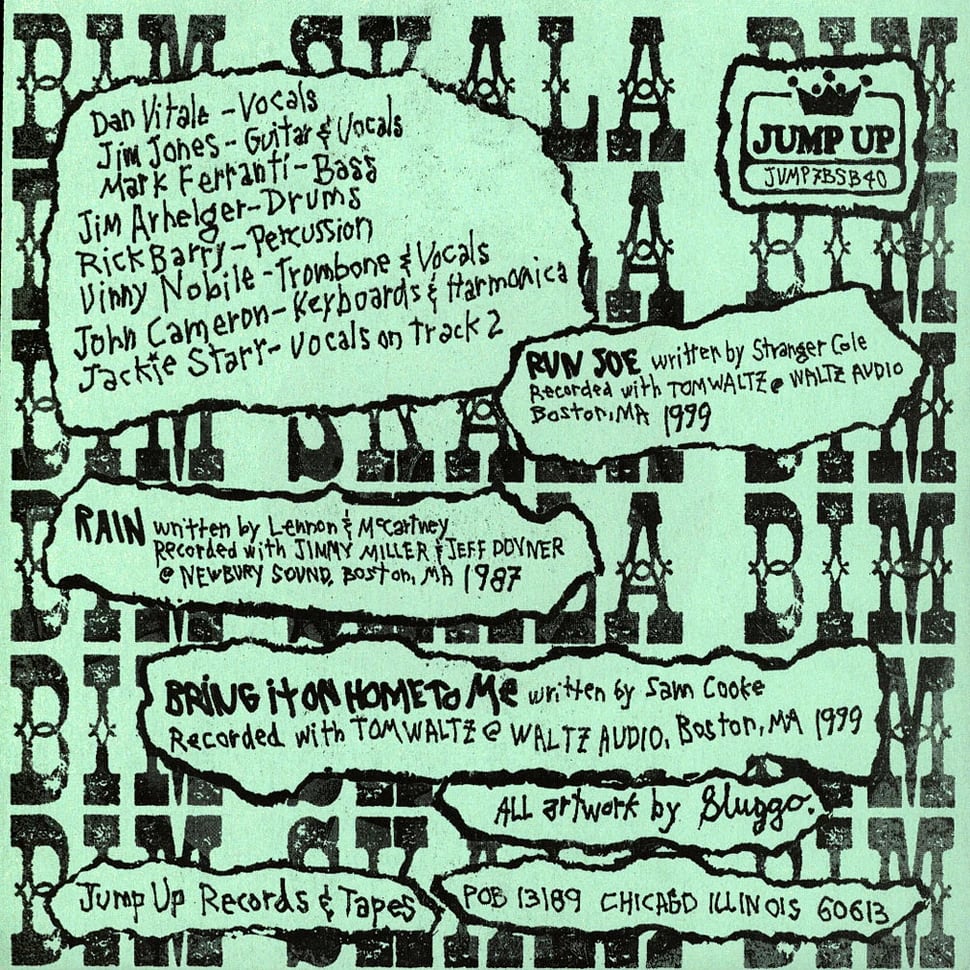 BIM SKALA BIM
Dan Vitale - Vocals
Jim Jones - Guitar & Vocals
Mark Ferranti - Bass
Jim Arhelger - Drums
Rick Barry - Percussion
Vinny Nobile - Trombone & Vocals
John Cameron - Keyboards & Harmonica
Jackie Starr - Vocals on track 2
JUMP UP
JUMP7BSB40
RUN JOE written by Stranger Cole
Recorded with TOM WALTZ @ WALTZ AUDIO
Boston, MA 1999
RAIN written by Lennon & McCartney
Recorded with JIMMY MILLER & JEFF DOVNER
@ NEWBURY SOUND, Boston, MA 1987
BRING it ON HOME TO Me written by Sam Cooke
Recorded with TOM WALTZ @ WALTZ AUDIO, Boston, MA 1999
ALL artwork by Sluggo.
Jump Up Records & Tapes
POB 13189 CHICAGO ILLINOIS 60613